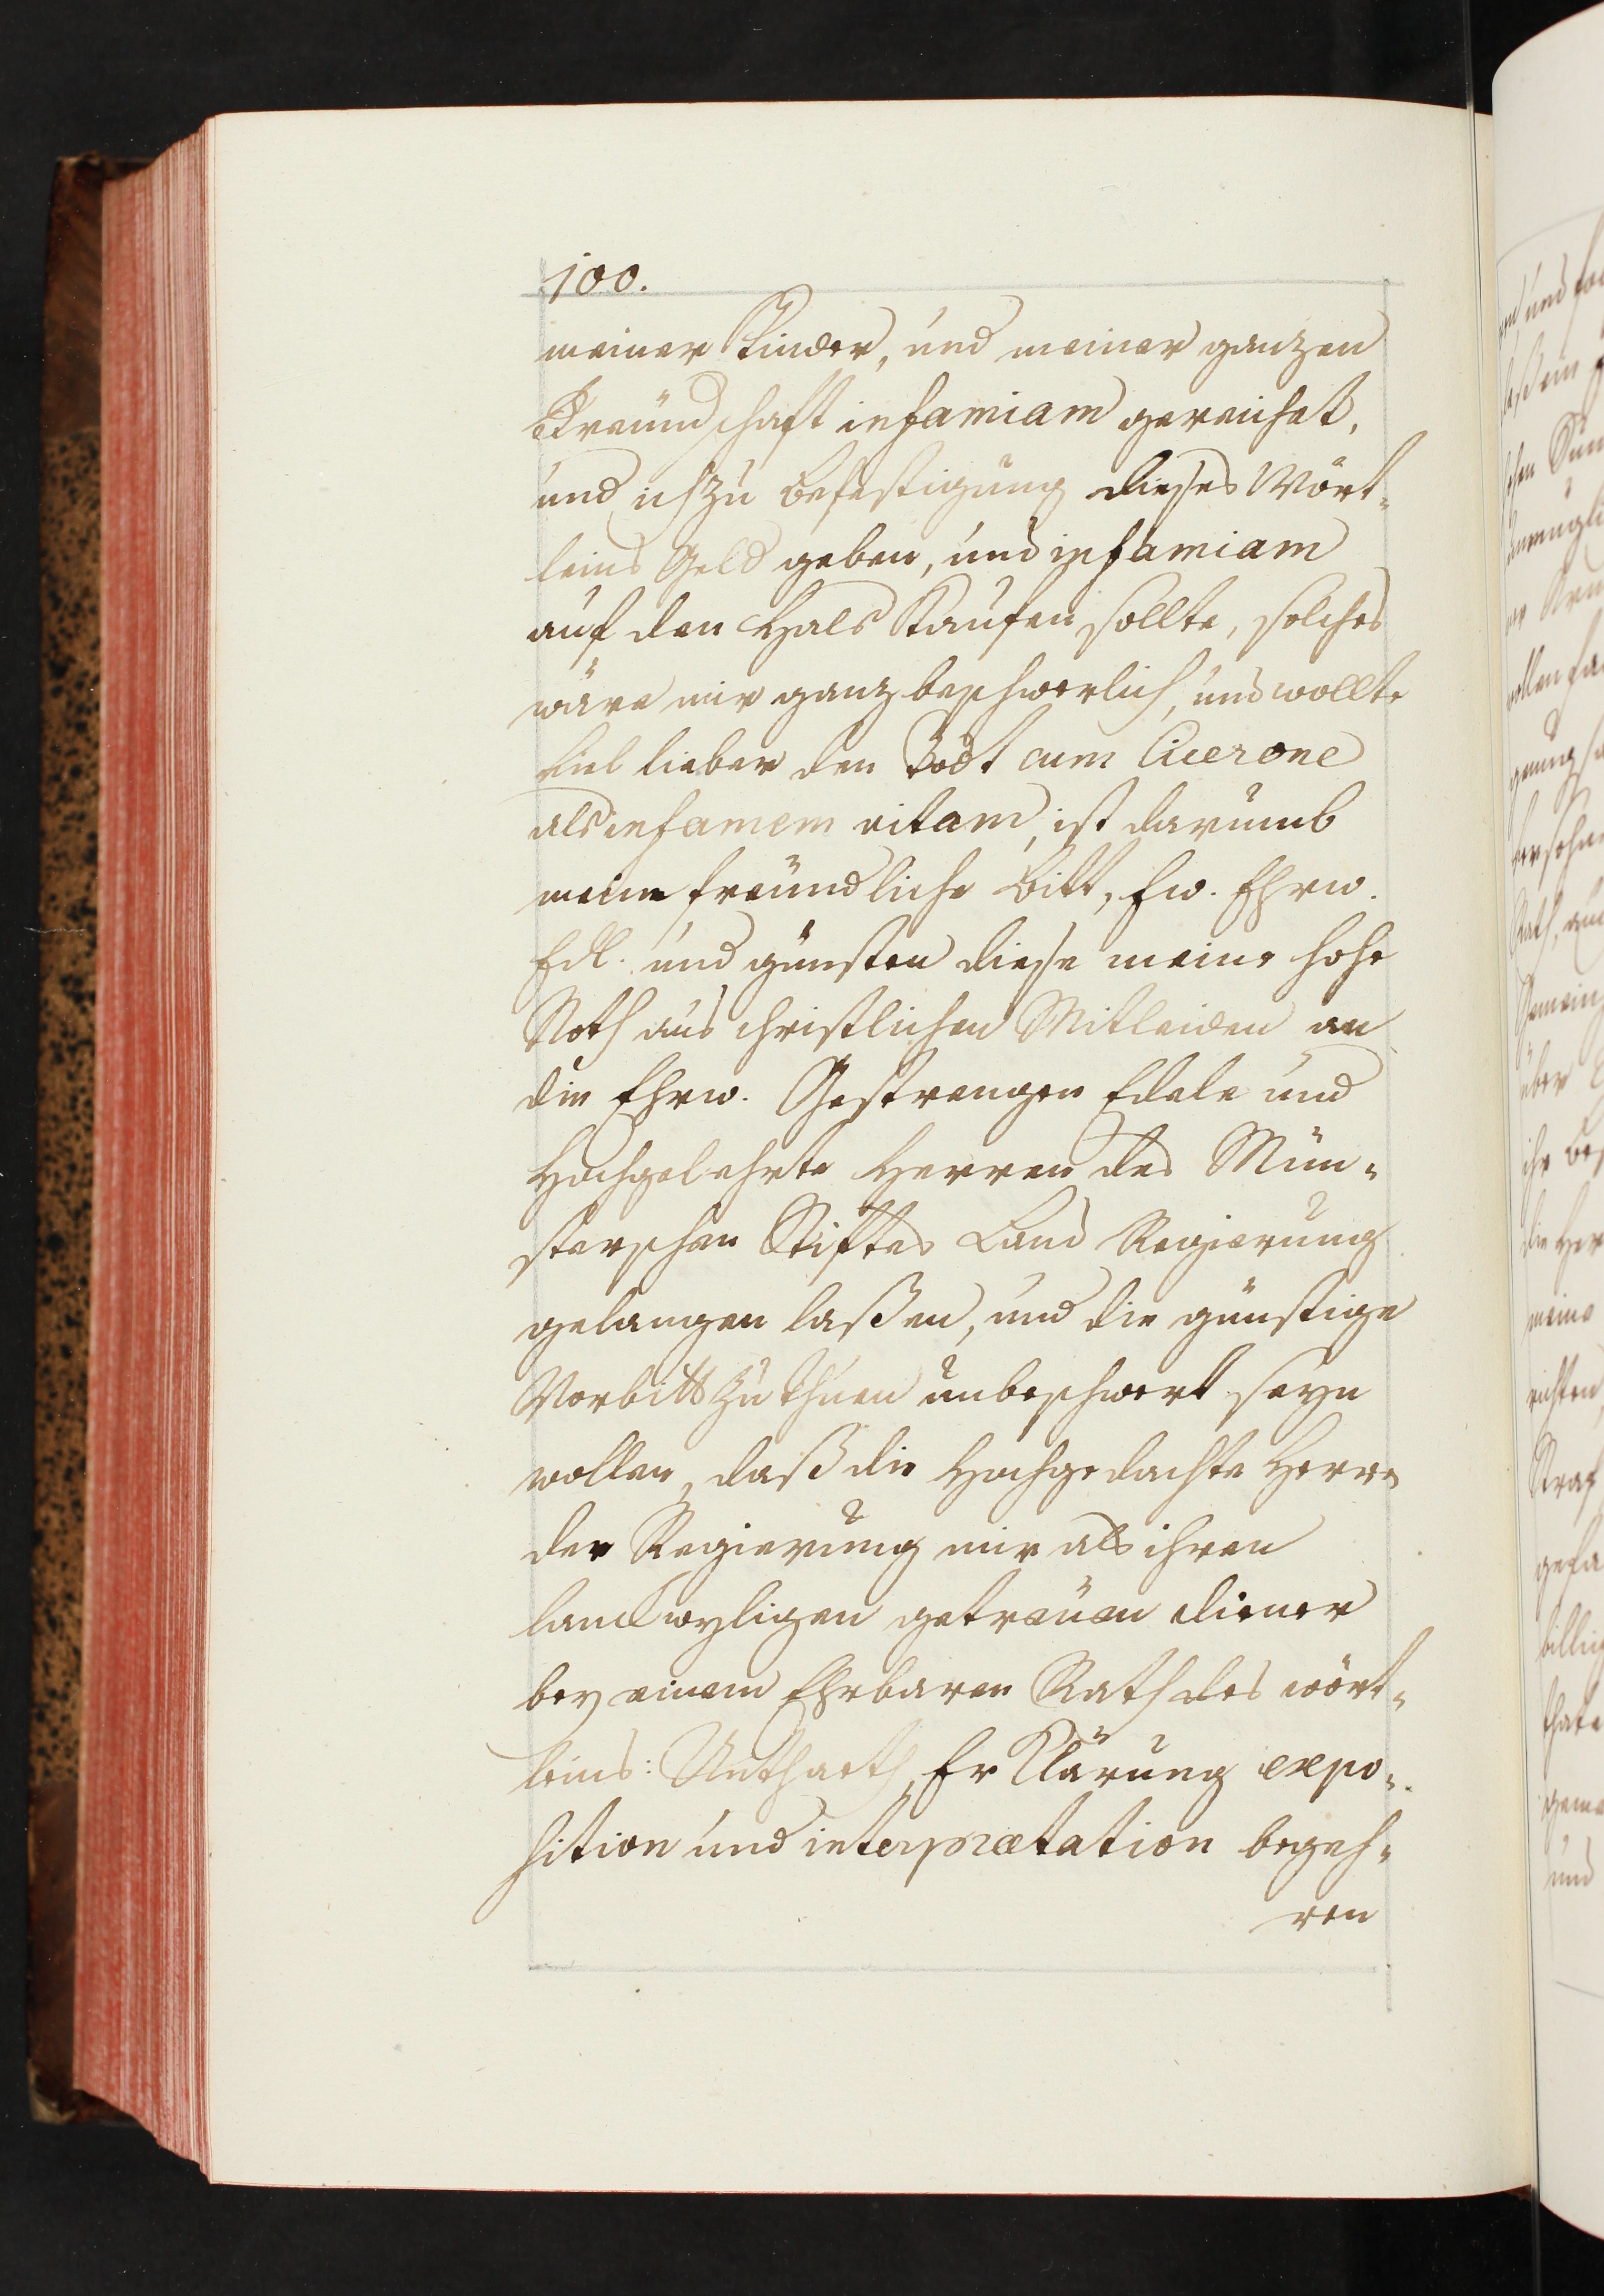 100.
meiner Kinder, und meiner ganzen
Freündschaft infamiam gereichet,
und ich zu befestigung dieses Wört-
leins Geld geben, und infamiam
auf den Hals Kaufen sollte, solches
wäre mir ganz beschwerlich, und wollte
viel lieber den Todt cum Cicerone
als infamem vitam, ist darumb
meine freündliche bitt, Ew. Ehrw.
Edl. und günsten diese meine hohe
Noth aus christlichen Mitleiden an
die Ehrw. Gestrengen Edele und
Hochgelehrte Herren des Mün-
sterschen Stiftes Land Regierung
gelangen laßen, und die günstige
Vorbitt zu thuen unbeschwert seyn
wollen, daß die Hochgedachte Herrn
der Regierung mir als ihren
getreüen diener
bey einem Ehrbaren Rath des wört-
leins: Unthaeth, ErKlärung expo-
sition und interprætation begeh-
ren